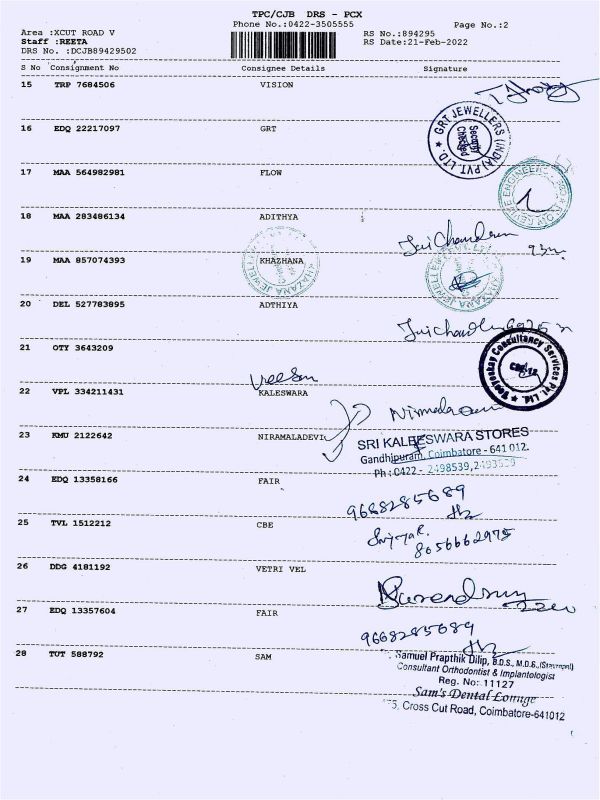 TPC/CJB DRS - PCX
Phone No.:0422-3505555 Page No.:2
Area :XCUT ROAD V RS No.:894295
Staff :REETA RS Date:21-Feb-2022
DRS No. :DCJB89429502
S No Consignment No Consignee Details Signature
15 TRP 7684506 VISION
16 EDQ 22217097 GRT
GRT JEWELLERS (INDIA) PVT. LTD.
Security Checked
17 MAA 564982981 FLOW
18 MAA 283486134 ADITHYA
Jai Chandran
19 MAA 857074393 KHAZHANA
20 DEL 527783895 ADTHIYA
21 OTY 3643209
Consultancy Services Pvt. Ltd.
22 VPL 334211431 KALESWARA
23 KMU 2122642 NIRAMALADEVI
SRI KALEESWARA STORES
Gandhipuram, Coimbatore - 641 012.
Ph : 0422 - 2498539,
24 EDQ 13358166 FAIR
9688285689
25 TVL 1512212 CBE
8056662975
26 DDG 4181192 VETRI VEL
27 EDQ 13357604 FAIR
9668285689
28 TUT 588792 SAM
Samuel Prapthik Dilip, B.D.S., M.D.S.,
Consultant Orthodontist & Implantologist
Reg. No: 11127
Sam's Dental Lounge
Cross Cut Road, Coimbatore-641012